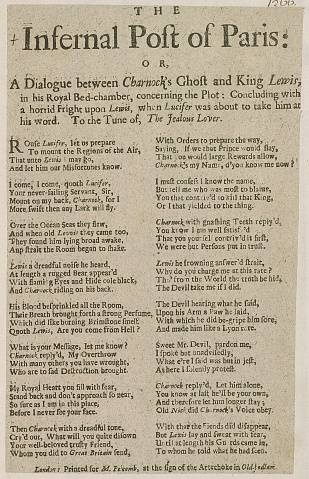 THE
Infernal Post of Paris:
OR,
A Dialogue between Charnock's Ghost and King Lewis,
in his Royal Bed-chamber, concerning the Plot: Concluding with
a horrid Fright upon Lewis, when Lucifer was about to take him at
his word. To the Tune of, The Jealous Lover.
ROuse Lucifer, let us prepare
To mount the Regions of the Air,
That unto Lewis I may go,
And let him our Misfortunes know.
I come, I come, quoth Lucifer,
Your never-failing Servant, Sir,
Mount on my back, Charnock, for I
More swift then any Lark will fly.
Over the Ocean Seas they flew,
And when old Lewis they came too,
They found him lying broad awake,
And straight the Room began to shake.
Lewis a dreadful noise he heard,
At length a rugged Bear appear'd
With flaming Eyes and Hide cole black,
And Charnock riding on his back.
His Blood besprinkled all the Room,
Their Breath brought forth a strong Perfume,
Which did like burning Brimstone smell:
Quoth Lewis, Are you come from Hell?
What is your Message, let me know?
Charnock reply'd, My Overthrow
With many others you have wrought,
Who are to sad Destruction brought.
My Royal Heart you fill with fear,
Stand back and don't approach so near,
So sure as I am in this place,
Before I never see your face.
Then Charnock with a dreadful tone,
Cry'd out, What will you quite disown
Your well-beloved trusty Friend,
Whom you did to Great Britain send,
With Orders to prepare the way,
Saying, If we that Prince would slay,
That you would large Rewards allow,
Charnock's my Name, d'you know me now?
I must confess I know the name,
But tell me who was most to blame,
You that contriv'd to kill that King,
Or I that yielded to the thing.
Charnock with gnashing Teeth reply'd,
You know I am well satisf'd
That you your self contriv'd it first,
We were but Persons put in trust.
Lewis he frowning answer'd strait,
Why do you charge me at this rate?
The Devil take me if I did.
The Devil hearing what he said,
Upon his Arm a Paw he laid,
With which he did be-gripe him sore,
And made him like a Lyon rore.
Sweet Mr. Devil, pardon me,
I spoke but unadvisedly,
What e're I said was but in jest,
As here I solemnly protest.
Charnock reply'd, Let him alone,
You know at last he'll be your own,
And therefore let him longer stay;
Old Nick did Charnock's Voice obey.
With that the Fiends did disappear,
But Lewis lay and sweat with fear,
Until at length his Guards came in,
To whom he told what he had seen.
London: Printed for at the sign of the Artichoke in Old-